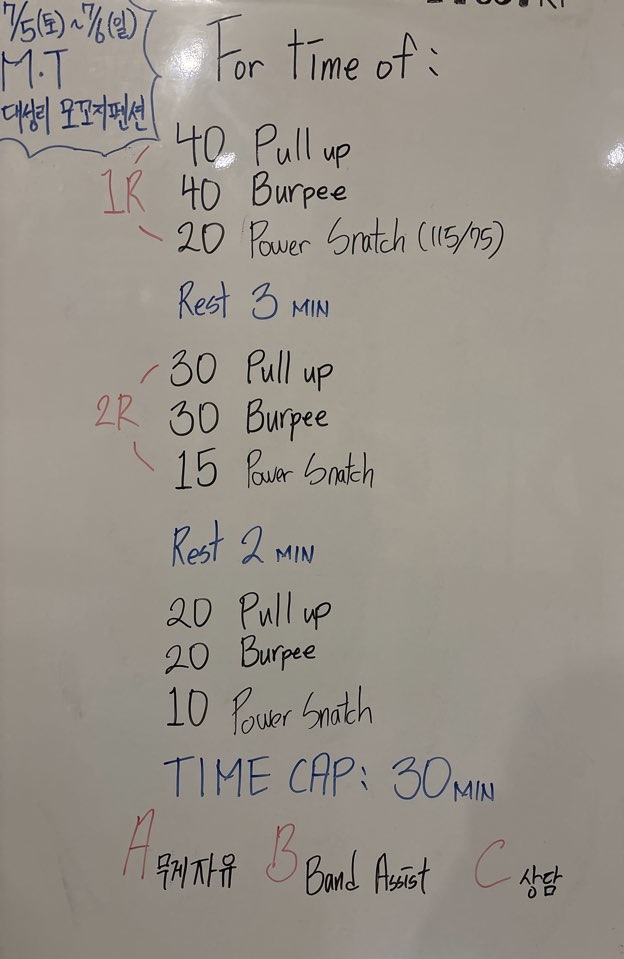 7/5(토)~7/6(일)
M.T
대성리 모꼬지펜션
For time of:
1R
40 Pull up
40 Burpee
20 Power Snatch (115/75)
Rest 3 MIN
2R
30 Pull up
30 Burpee
15 Power Snatch
Rest 2 MIN
20 Pull up
20 Burpee
10 Power Snatch
TIME CAP: 30 MIN
A 무게자유 B Band Assist C 상담